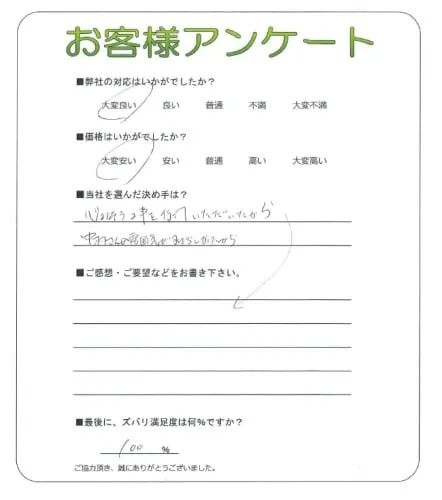 お客様アンケート
■弊社の対応はいかがでしたか？
大変良い 良い 普通 不満 大変不満
■価格はいかがでしたか？
大変安い 安い 普通 高い 大変高い
■当社を選んだ決め手は？
いただいたから
さんの雰囲気が すばらしかったから
■ご感想・ご要望などをお書き下さい。
■最後に、ズバリ満足度は何%ですか？
100 %
ご協力頂き、誠にありがとうございました。